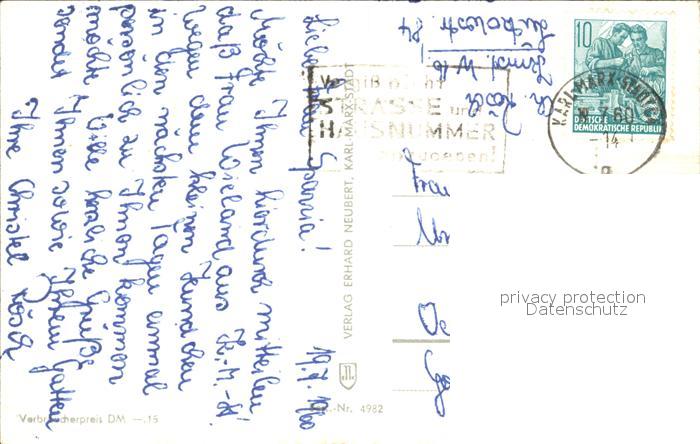 Liebe Frau Sparria! 19.7.1960
Möchte Ihnen hierdurch mitteilen,
daß Frau Wieland aus K.-M.-St.
wegen dem kleinen Hündchen
in den nächsten Tagen einmal
persönlich zu Ihnen kommen
möchte. Viele herzliche Grüße
sendet Ihnen sowie Ihrem Gatten
Ihre Christel Rösch
Verbraucherpreis DM —.15
VERLAG ERHARD NEUBERT, KARL-MARX-STADT
Nr. 4982
Ch. Rösch
84
STRASSE und
HAUSNUMMER
10
DEUTSCHE
DEMOKRATISCHE REPUBLIK
KARL-MARX-STADT
60
-14
Frau
privacy protection
Datenschutz